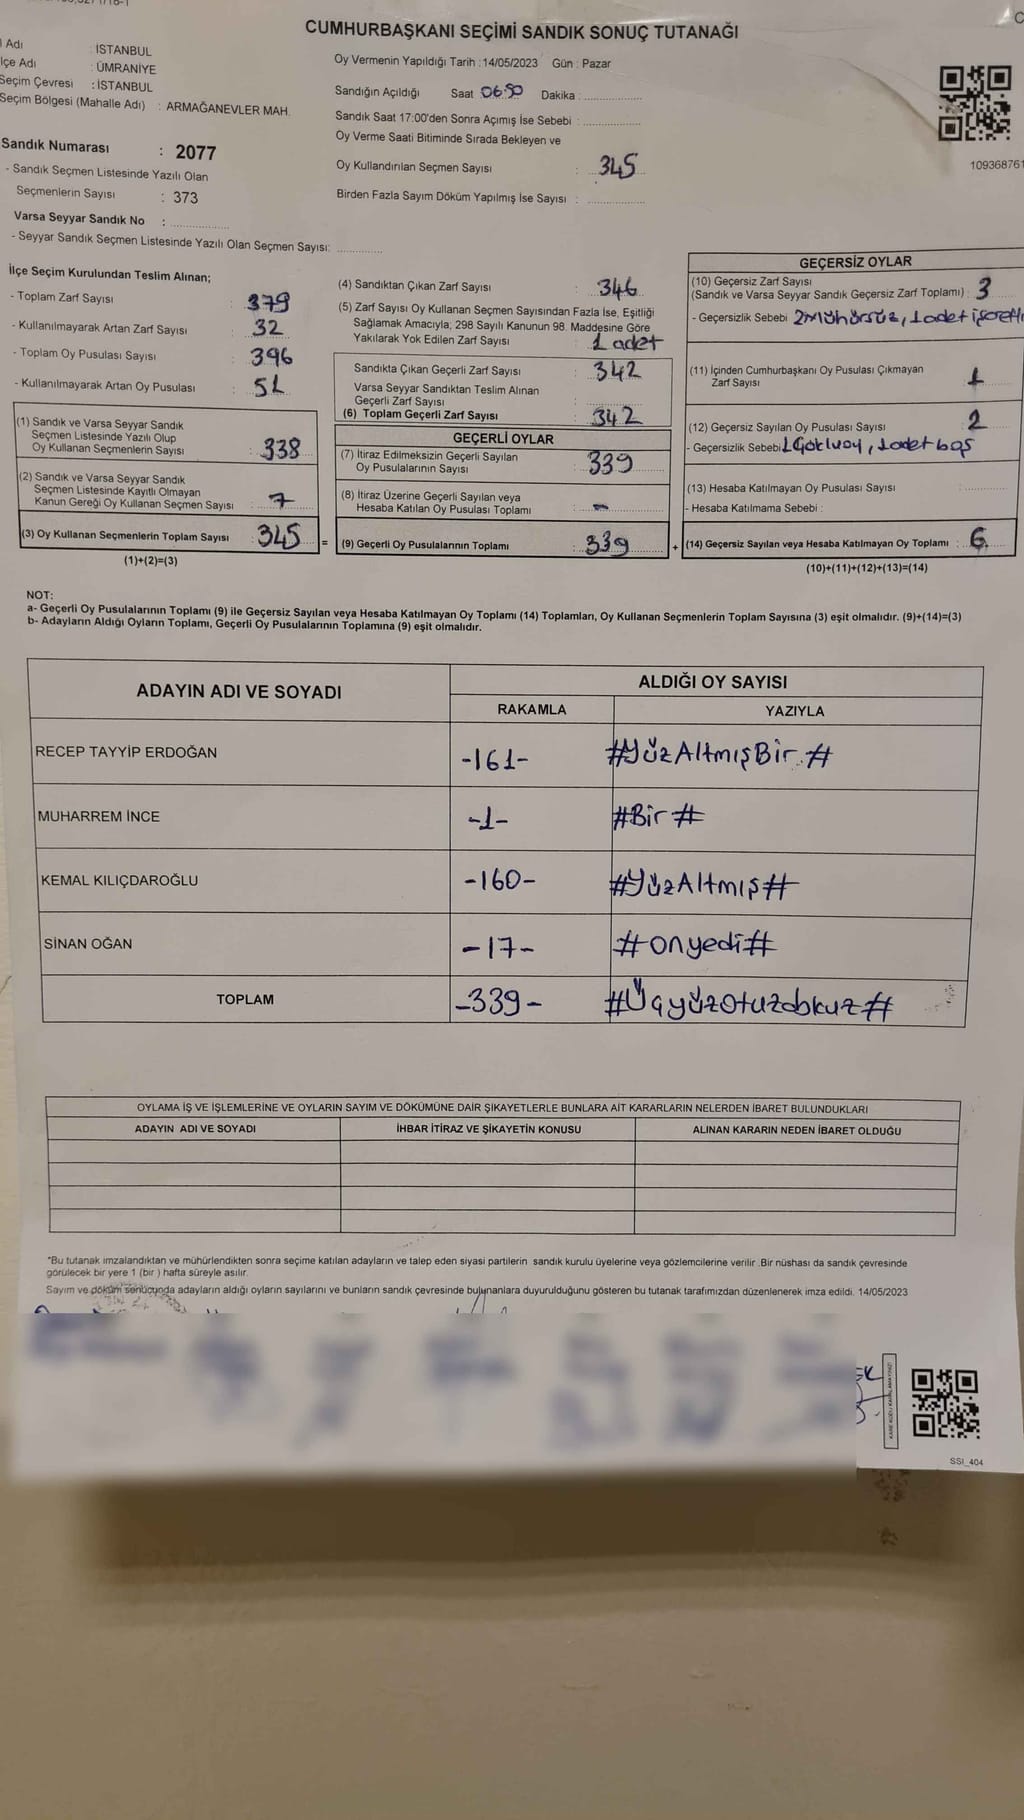 CUMHURBAŞKANI SEÇİMİ SANDIK SONUÇ TUTANAĞI
Adı : İSTANBUL
lçe Adı : ÜMRANİYE
Seçim Çevresi : İSTANBUL
Seçim Bölgesi (Mahalle Adı) : ARMAĞANEVLER MAH.
Sandık Numarası : 2077
- Sandık Seçmen Listesinde Yazılı Olan
Seçmenlerin Sayısı : 373
Varsa Seyyar Sandık No :
- Seyyar Sandık Seçmen Listesinde Yazılı Olan Seçmen Sayısı:
Oy Vermenin Yapıldığı Tarih : 14/05/2023 Gün : Pazar
Sandığın Açıldığı Saat 06:50 Dakika :
Sandık Saat 17:00'den Sonra Açımış İse Sebebi :
Oy Verme Saati Bitiminde Sırada Bekleyen ve
Oy Kullandırılan Seçmen Sayısı : 345
Birden Fazla Sayım Döküm Yapılmış İse Sayısı :
109368761
İlçe Seçim Kurulundan Teslim Alınan;
- Toplam Zarf Sayısı : 379
- Kullanılmayarak Artan Zarf Sayısı : 32
- Toplam Oy Pusulası Sayısı : 396
- Kullanılmayarak Artan Oy Pusulası : 51
(1) Sandık ve Varsa Seyyar Sandık
Seçmen Listesinde Yazılı Olup
Oy Kullanan Seçmenlerin Sayısı : 338
(2) Sandık ve Varsa Seyyar Sandık
Seçmen Listesinde Kayıtlı Olmayan
Kanun Gereği Oy Kullanan Seçmen Sayısı : 7
(3) Oy Kullanan Seçmenlerin Toplam Sayısı : 345 =
(1)+(2)=(3)
(4) Sandıktan Çıkan Zarf Sayısı : 346
(5) Zarf Sayısı Oy Kullanan Seçmen Sayısından Fazla İse, Eşitliği
Sağlamak Amacıyla; 298 Sayılı Kanunun 98. Maddesine Göre
Yakılarak Yok Edilen Zarf Sayısı : 1 adet
Sandıkta Çıkan Geçerli Zarf Sayısı : 342
Varsa Seyyar Sandıktan Teslim Alınan
Geçerli Zarf Sayısı :
(6) Toplam Geçerli Zarf Sayısı : 342
GEÇERLİ OYLAR
(7) İtiraz Edilmeksizin Geçerli Sayılan
Oy Pusulalarının Sayısı : 339
(8) İtiraz Üzerine Geçerli Sayılan veya
Hesaba Katılan Oy Pusulası Toplamı : -
(9) Geçerli Oy Pusulalarının Toplamı : 339 +
GEÇERSİZ OYLAR
(10) Geçersiz Zarf Sayısı
(Sandık ve Varsa Seyyar Sandık Geçersiz Zarf Toplamı) : 3
- Geçersizlik Sebebi 2 Mühürsüz, 1 adet işaretli
(11) İçinden Cumhurbaşkanı Oy Pusulası Çıkmayan
Zarf Sayısı : 1
(12) Geçersiz Sayılan Oy Pusulası Sayısı : 2
- Geçersizlik Sebebi 1 Çoklu oy, 1 adet boş
(13) Hesaba Katılmayan Oy Pusulası Sayısı :
- Hesaba Katılmama Sebebi :
(14) Geçersiz Sayılan veya Hesaba Katılmayan Oy Toplamı : 6
(10)+(11)+(12)+(13)=(14)
NOT:
a- Geçerli Oy Pusulalarının Toplamı (9) ile Geçersiz Sayılan veya Hesaba Katılmayan Oy Toplamı (14) Toplamları, Oy Kullanan Seçmenlerin Toplam Sayısına (3) eşit olmalıdır. (9)+(14)=(3)
b- Adayların Aldığı Oyların Toplamı, Geçerli Oy Pusulalarının Toplamına (9) eşit olmalıdır.
ADAYIN ADI VE SOYADI ALDIĞI OY SAYISI
RAKAMLA YAZIYLA
RECEP TAYYİP ERDOĞAN -161- #YüzAltmışBir#
MUHARREM İNCE -1- #Bir#
KEMAL KILIÇDAROĞLU -160- #YüzAltmış#
SİNAN OĞAN -17- #onyedi#
TOPLAM -339- #Üçyüzotuzdokuz#
OYLAMA İŞ VE İŞLEMLERİNE VE OYLARIN SAYIM VE DÖKÜMÜNE DAİR ŞİKAYETLERLE BUNLARA AİT KARARLARIN NELERDEN İBARET BULUNDUKLARI
ADAYIN ADI VE SOYADI İHBAR İTİRAZ VE ŞİKAYETİN KONUSU ALINAN KARARIN NEDEN İBARET OLDUĞU
*Bu tutanak imzalandıktan ve mühürlendikten sonra seçime katılan adayların ve talep eden siyasi partilerin sandık kurulu üyelerine veya gözlemcilerine verilir .Bir nüshası da sandık çevresinde
görülecek bir yere 1 (bir ) hafta süreyle asılır.
Sayım ve döküm sonucunda adayların aldığı oyların sayılarını ve bunların sandık çevresinde bulunanlara duyurulduğunu gösteren bu tutanak tarafımızdan düzenlenerek imza edildi. 14/05/2023
SSI_404